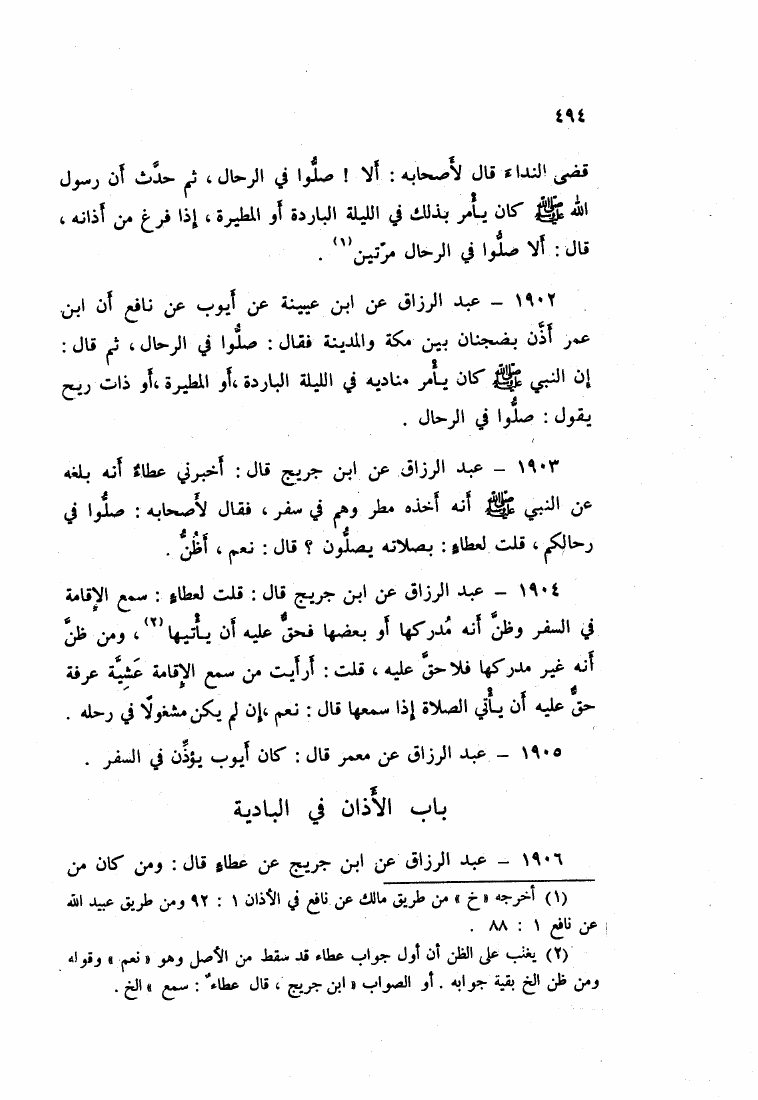 ٤٩٤
قضى النداء قال لأَصحابه : أَلا ! صلُّوا في الرحال ، ثم حدَّث أَن رسول
الله ﷺ كان يأْمر بذلك في الليلة الباردة أَو المطيرة ، إذا فرغ من أَذانه ،
قال : أَلا صلُّوا في الرحال مرّتين (١) .
١٩٠٢ – عبد الرزاق عن ابن عيينة عن أَيوب عن نافع أَن ابن
عمر أَذَّن بضجنان بين مكة والمدينة فقال : صلُّوا في الرحال ، ثم قال :
إن النبي ﷺ كان يأْمر مناديه في الليلة الباردة ،أَو المطيرة ،أَو ذات ريح
يقول : صلُّوا في الرحال .
١٩٠٣ – عبد الرزاق عن ابن جريج قال : أَخبرني عطاءٌ أَنه بلغه
عن النبي ﷺ أَنه أَخذه مطر وهم في سفر ، فقال لأَصحابه : صلُّوا في
رحالكم ، قلت لعطاءٍ : بصلاته يصلُّون ؟ قال : نعم ، أَظُنُّ .
١٩٠٤ – عبد الرزاق عن ابن جريج قال : قلت لعطاءٍ : سمع الإقامة
في السفر وظنَّ أَنه مُدركها أَو بعضها فحقٌّ عليه أَن يأْتيها (٢) ، ومن ظنَّ
أَنه غير مدركها فلا حقَّ عليه ، قلت : أَرأَيت من سمع الإقامة عَشِيَّة عرفة
حقٌّ عليه أَن يأْتي الصلاة إذا سمعها قال : نعم ،إن لم يكن مشغولًا في رحله .
١٩٠٥ – عبد الرزاق عن معمر قال : كان أَيوب يؤذِّن في السفر .
باب الأَذان في البادية
١٩٠٦ – عبد الرزاق عن ابن جريج عن عطاءٍ قال : ومن كان من
(١) أخرجه «خ» من طريق مالك عن نافع في الأذان ١ : ٩٢ ومن طريق عبيد الله
عن نافع ١ : ٨٨ .
(٢) يغلب على الظن أن أول جواب عطاء قد سقط من الأصل وهو «نعم» وقوله
ومن ظن الخ بقية جوابه . أو الصواب «ابن جريج ، قال عطاءٌ : سمع» الخ .